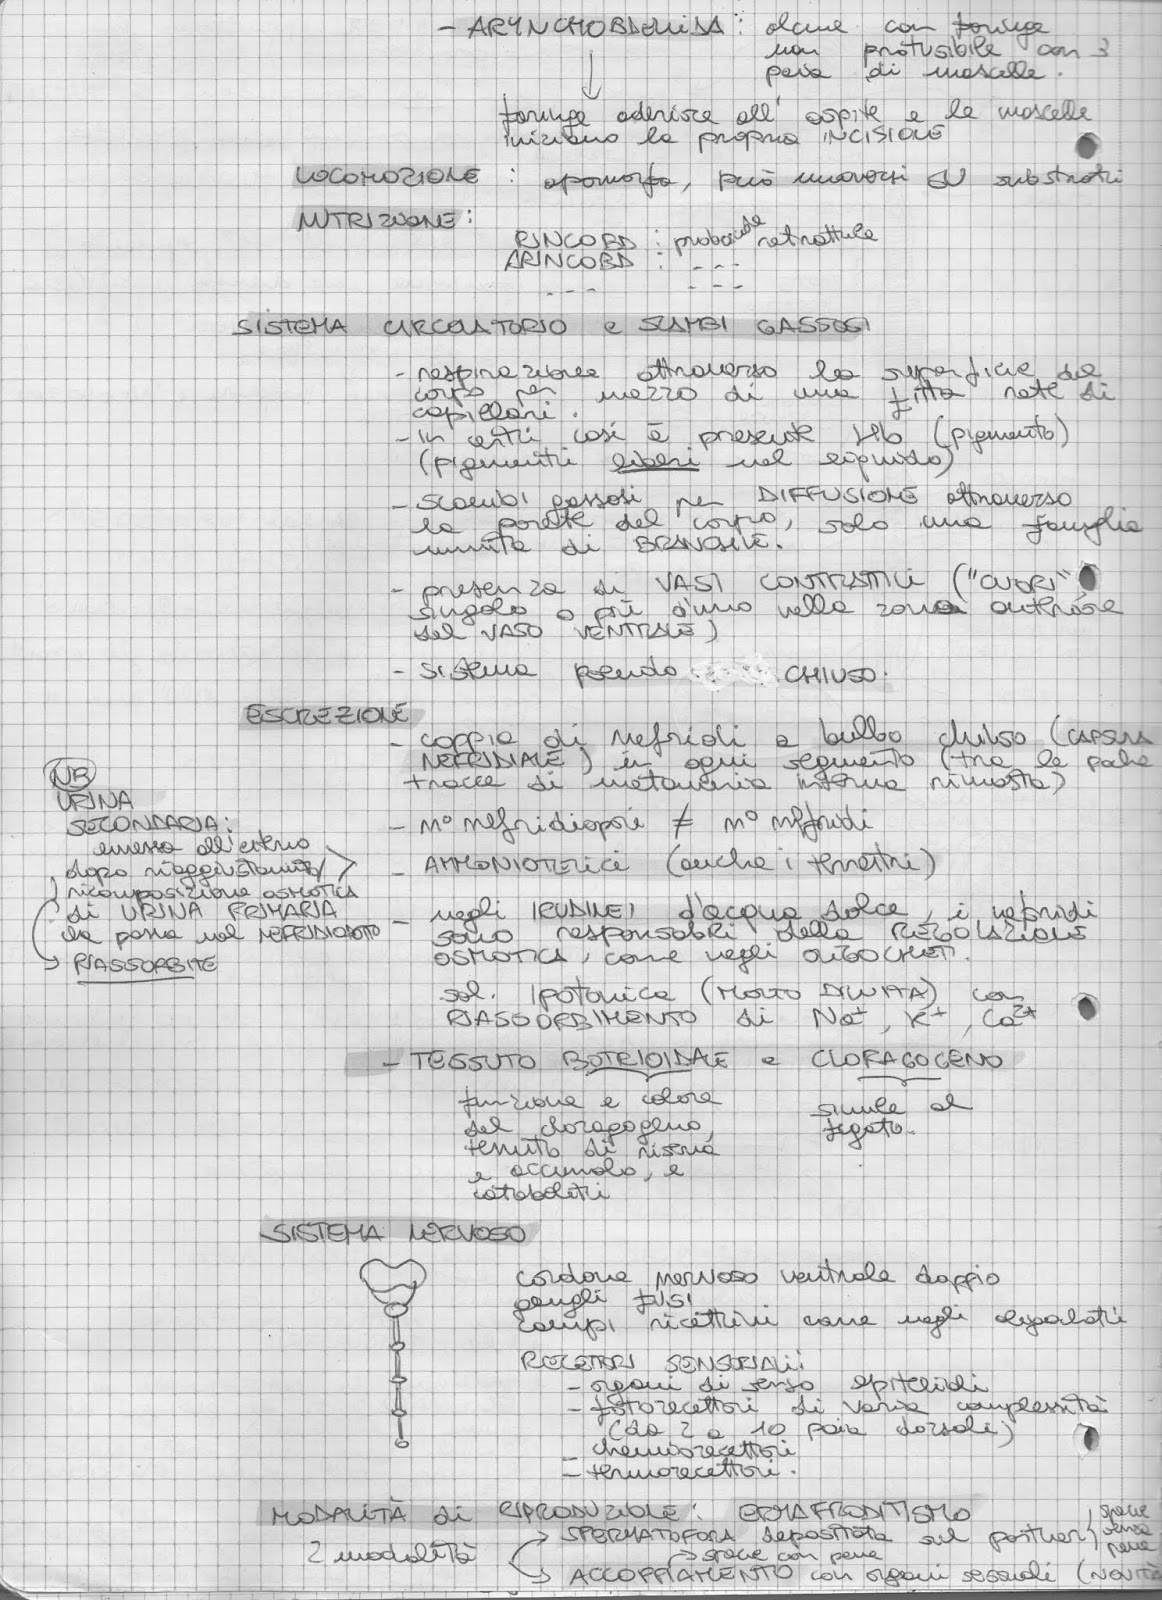 - ARYNCHOBDELLIDA : alcune con faringe
non protusibile con 3
paia di mascelle.
faringe aderisce all'ospite e le mascelle
iniziano la propria INCISIONE
LOCOMOZIONE : apomorfa, può muoversi su substrati
NUTRIZIONE :
RINCOBD : proboscide retrattile
ARINCOBD : ---
--- ---
SISTEMA CIRCOLATORIO e SCAMBI GASSOSI
- respirazione attraverso la superficie del
corpo per mezzo di una fitta rete di
capillari.
- in certi casi è presente Hb (pigmento)
(pigmenti liberi nel liquido)
- scambi gassosi per DIFFUSIONE attraverso
la parete del corpo, solo una famiglia
munita di BRANCHIE.
- presenza di VASI CONTRATTILI ("CUORI"
singolo o più d'uno nella zona anteriore
del VASO VENTRALE)
- sistema pseudo CHIUSO.
ESCREZIONE
- coppia di nefridi a bulbo chiuso (CAPSULA
NEFRIDIALE) in ogni segmento (tra le poche
tracce di metameria interna rimasta)
- n° nefridiopori ≠ n° nefridi
- AMMONIOTELICI (anche i terrestri)
- negli IRUDINEI d'acqua dolce, i nefridi
sono responsabili della REGOLAZIONE
OSMOTICA, come negli OLIGOCHETI.
sol. IPOTONICA (MOLTO DILUITA) con
RIASSORBIMENTO di Na+, K+, Ca2+
NB
URINA
SECONDARIA:
emessa all'esterno
dopo riaggiustamenti/
ricomposizione OSMOTICA
di URINA PRIMARIA
che passa nel NEFRIDIODOTTO
RIASSORBITE
- TESSUTO BOTRIOIDALE e CLORAGOGENO
funzione e colore
del cloragogeno,
tessuto di riserva
e accumulo, e
cataboliti
simile al
fegato.
SISTEMA NERVOSO
cordone nervoso ventrale doppio
gangli FUSI
campi ricettivi come negli
RECETTORI SENSORIALI:
- organi di senso epiteliali
- fotorecettori di varia complessità
(da 2 a 10 paia dorsali)
- chemiorecettori
- termorecettori.
MODALITÀ di RIPRODUZIONE: ERMAFRODITISMO
2 modalità
SPERMATOFORA depositata sul partner, specie
senza
pene
specie con pene
ACCOPPIAMENTO con organi sessuali (NOVITÀ